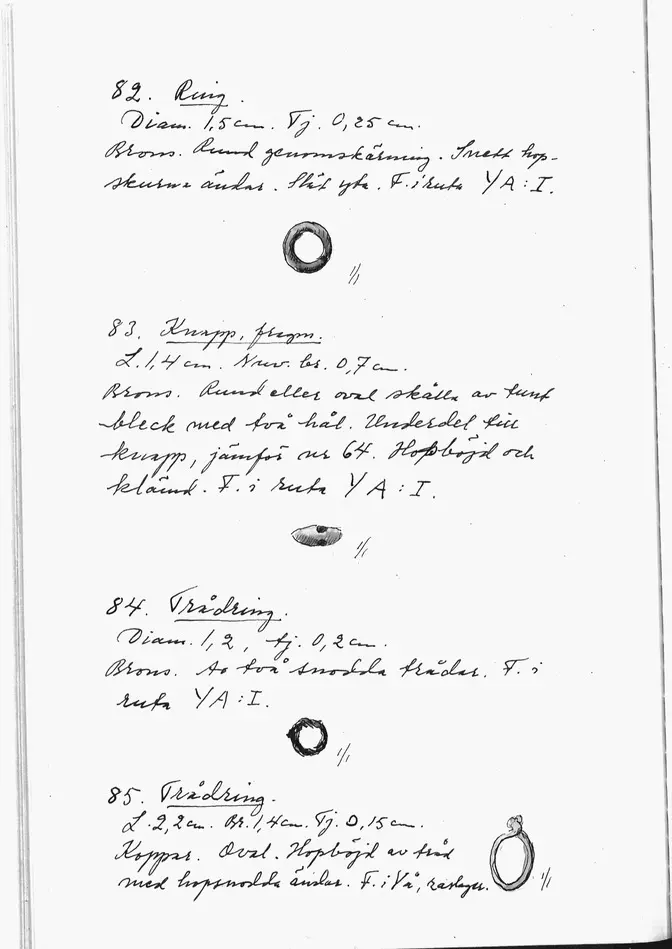 82. Ring.
Diam. 1,5 cm. Tj. 0,25 cm.
Brons. Rund genomskärning. Snett hop-
skurna ändar. Slät yta. F. i ruta Y A : I.
1/1
83. Knapp, fragm.
L. 1,4 cm. Nuv. br. 0,7 cm.
Brons. Rund eller oval skålla av tunt
bleck med två hål. Underdel till
knapp, jämför nr 64. Hopböjd och
klämd. F. i ruta Y A : I.
1/1
84. Trådring.
Diam. 1,2, tj. 0,2 cm.
Brons. Av två snodda trådar. F. i
ruta Y A : I.
1/1
85. Trådring.
L. 2,2 cm. Br. 1,4 cm. Tj. 0,15 cm.
Koppar. Oval. Hopböjd av tråd
med hopsnodda ändar. F. i Vå, raslager.
1/1